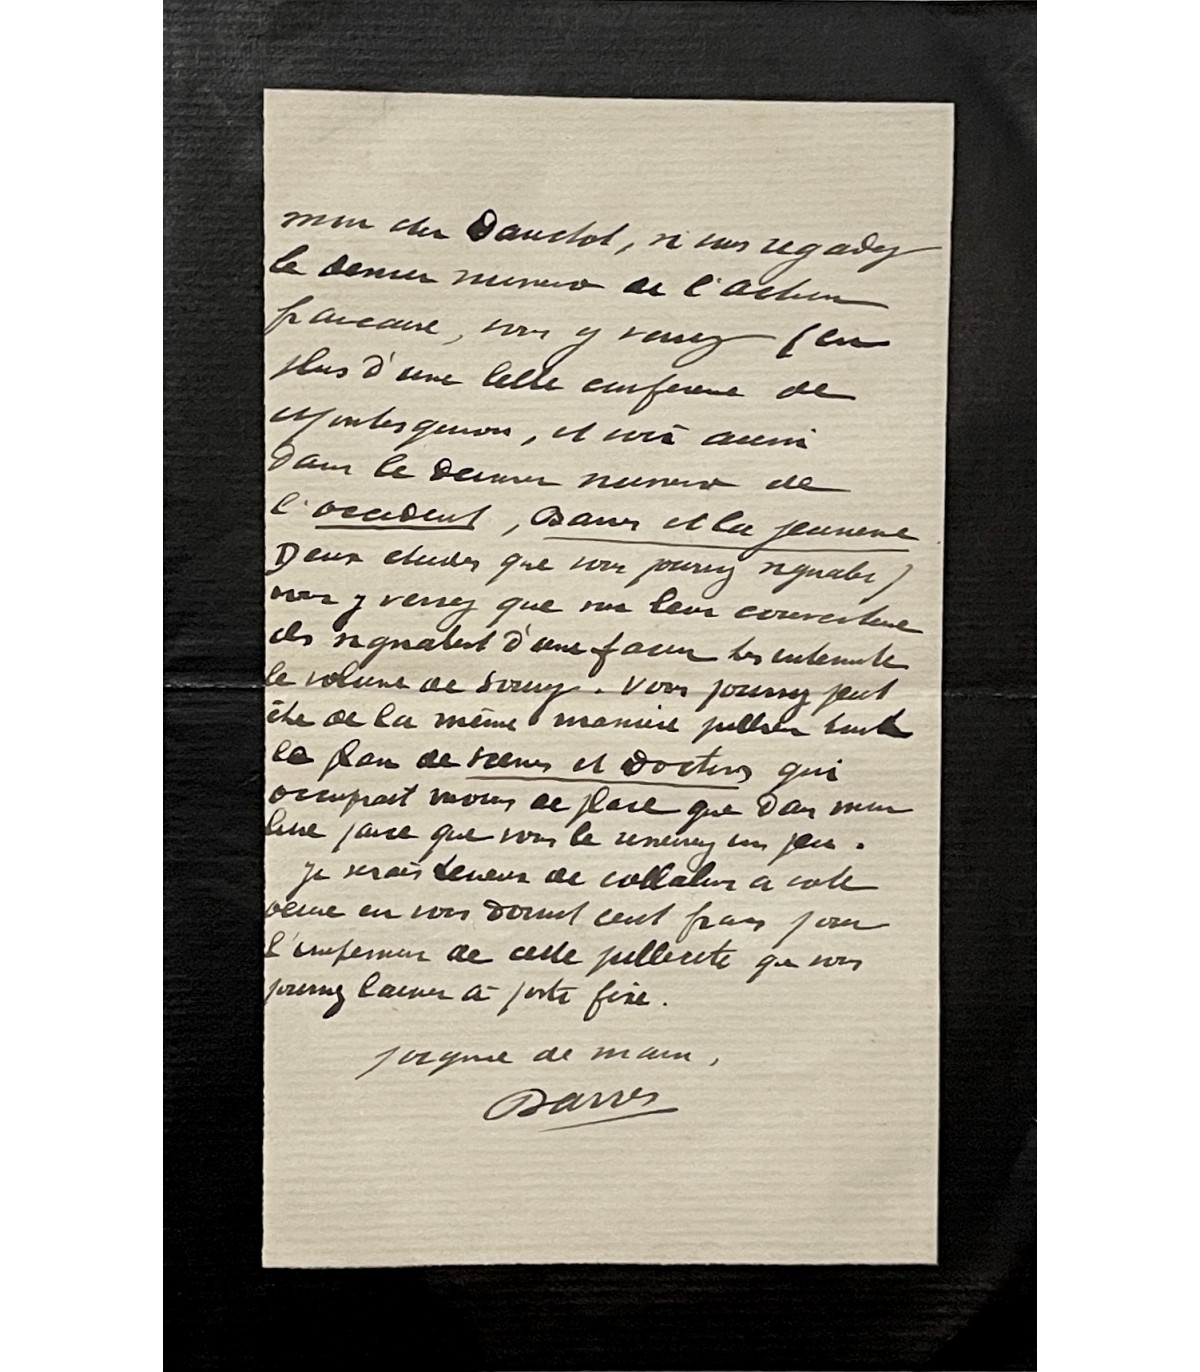 mon cher Dauchot, si vous regardez
le dernier numero de l'Action
francaise, vous y verrez (en
plus d'une belle conference de
Montesquiou, et voir aussi
dans le dernier numero de
l'occident, Barres et la jeunesse
Deux etudes que vous pourrez signaler)
vous y verrez que sur leur couverture
ils signalent d'une facon tres intermite
le volume de Soury. Vous pourrez peut
être de la même maniere publier toute
le plan de scenes et Doctrines qui
occuperait moins de place que dans mon
livre parce que vous le reserrez un peu.
je serais heureux de collaborer a cette
oeuvre en vous donnant cent francs pour
l'impression de cette publicite que vous
pourrez laisser à poste fixe.
poignee de main,
Barres